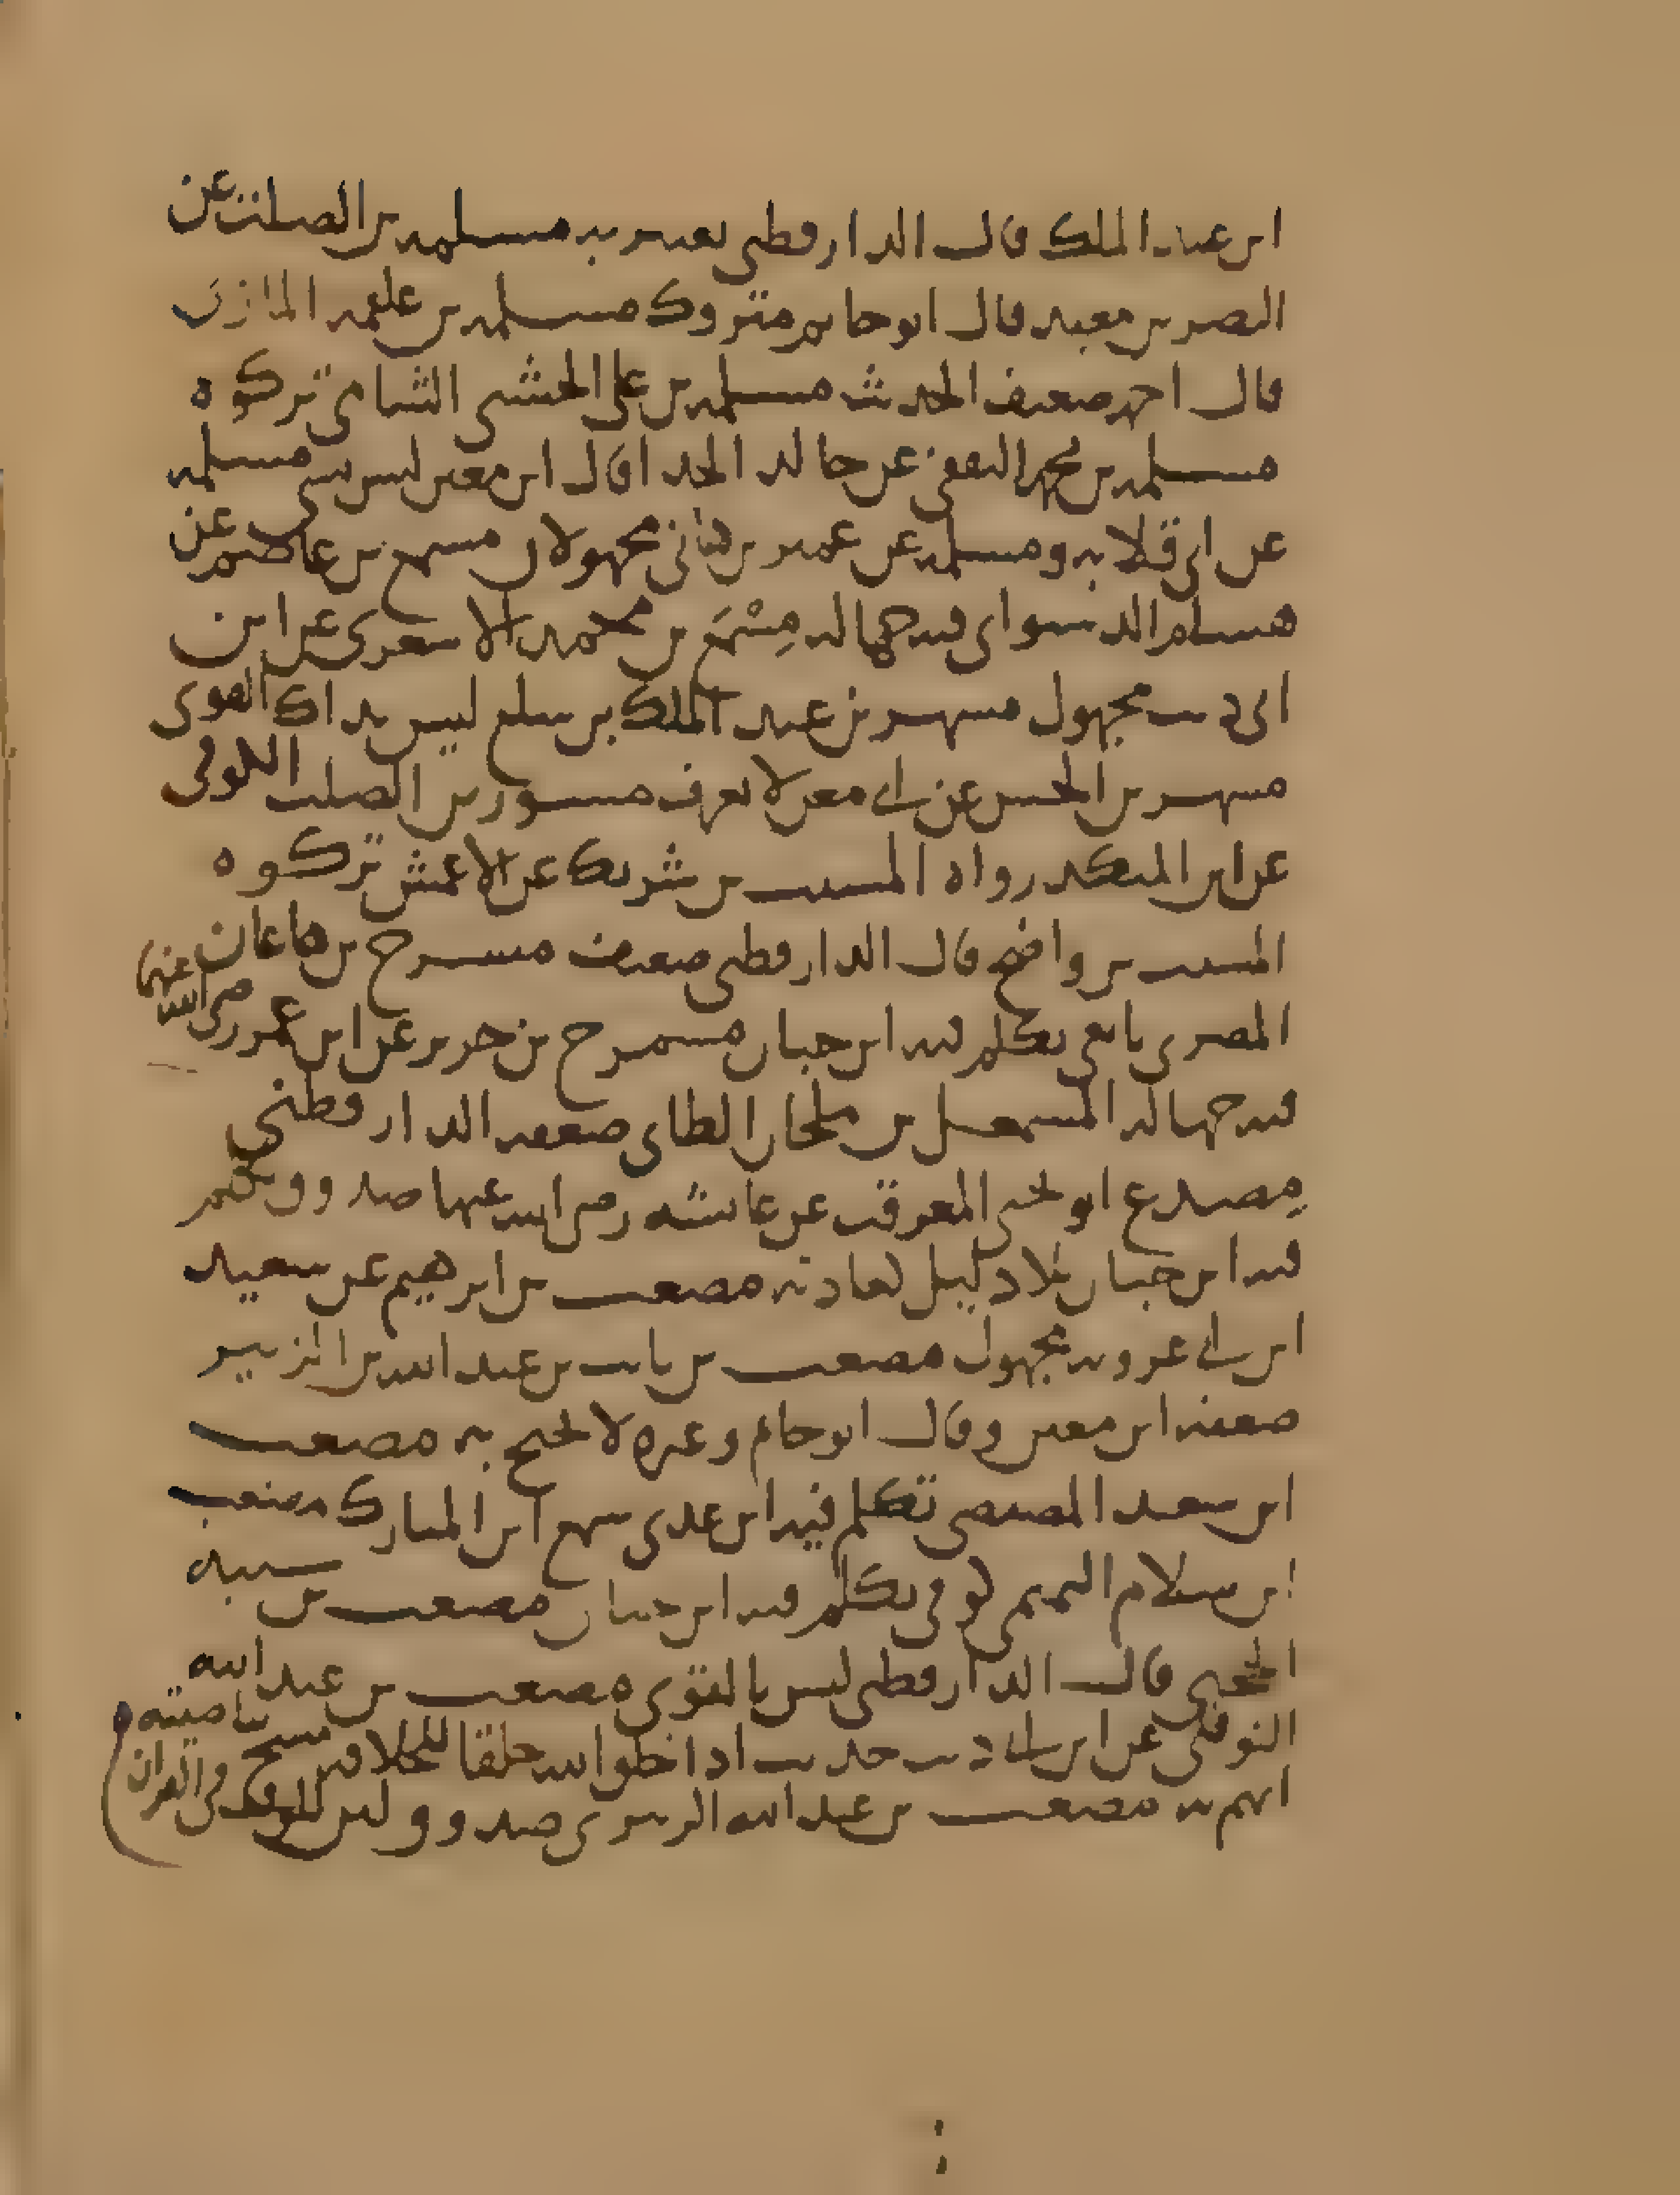 ابن عبد الملك قال الدارقطني يعتبر به مسلمة بن الصلت عن
النضر بن معبد قال ابو حاتم متروك مسلمة بن علقمة المازني
قال احمد ضعيف الحديث مسلمة بن علي الخشني الشامي تركوه
مسلمة بن محمد الثقفي عن خالد الحذا قال ابن معين ليس بشي مسلمة
عن ابي قلابة ومسلمة عن عمير بن هاني مجهولان مسمع بن عاصم عن
هشام الدستواي فيه جهالة مِسْمَع بن محمد الاشعري عن ابن
ابي ذيب مجهول مسهر بن عبد الملك بن سلع ليس بذاك القوي
مسهر بن الحسن عن ابي معن لا يعرف مسور بن الصلت الكوفي
عن ابن المنكدر رواه المسيب بن شريك عن الاعمش تركوه
المسيب بن واضح قال الدارقطني ضعيف مشرح بن هاعان
المصري تابعي تكلم فيه ابن حبان مسمرح بن حرير عن ابن عمر رضي الله عنهما
فيه جهالة المشمعل بن ملحان الطاي ضعفه الدارقطني
مِصدع ابو يحيى المعرقب عن عايشة رضي الله عنها صدوق تكلم
فيه ابن حبان بلا دليل لعادته مصعب بن ابرهيم عن سعيد
ابن ابي عروبة مجهول مصعب بن ثابت بن عبد الله بن الزبير
ضعفه ابن معين وقال ابو حاتم وغيره لا يحتج به مصعب
ابن سعيد المصيصي تكلم فيه ابن عدي سمع ابن المبارك مصعب
ابن سلام التميمي كوفي تكلم فيه ابن حبان مصعب بن شيبة
الحجبي قال الدارقطني ليس بالقوي مصعب بن عبد الله
النوفلي عن ابن ابي ذيب حديث اذا خلق الله خلقا للخلافة مسح ناصيته
اتهم به مصعب بن عبد الله الزبيري صدوق وليس للوقف في القران